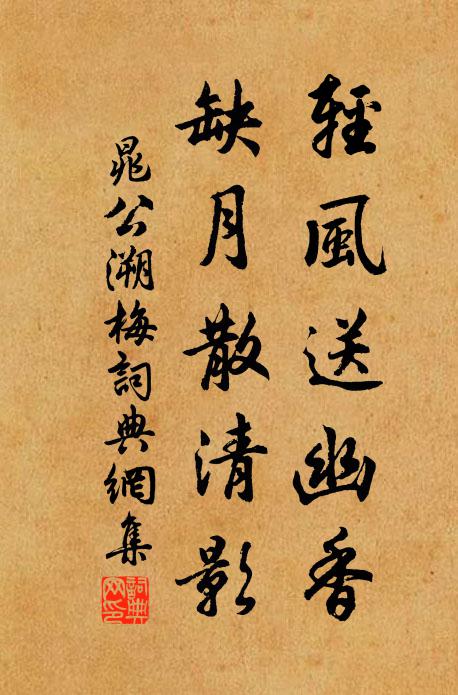 輕風送幽香
缺月散清影
晁公溯梅詞典網集
詞典網印